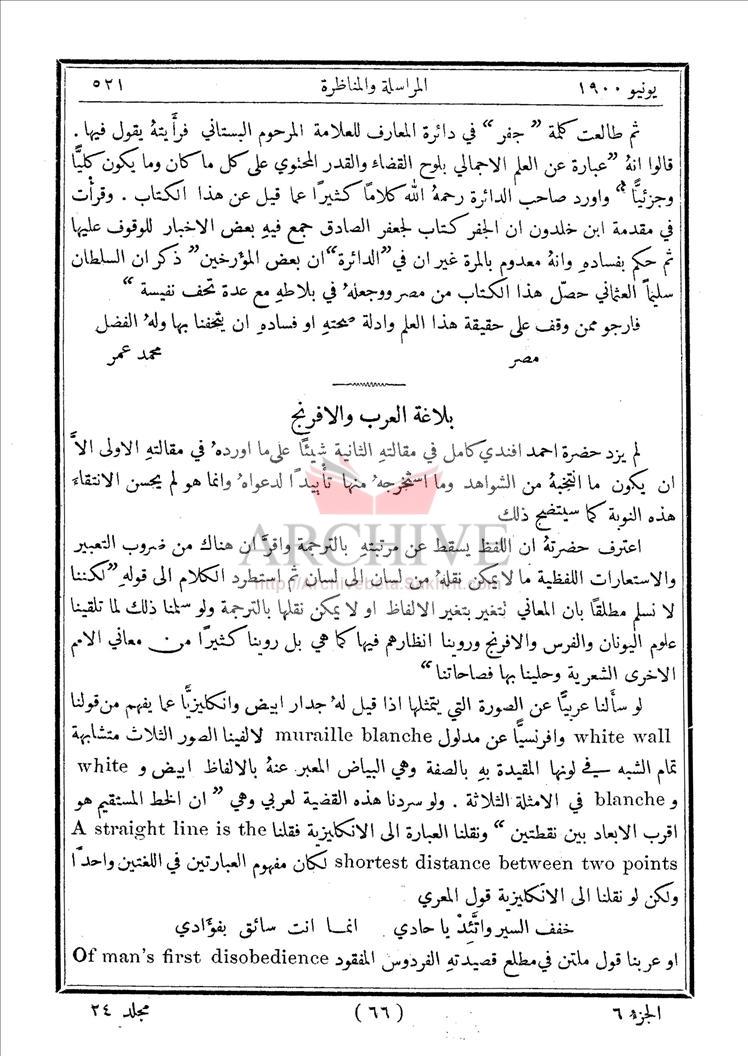 يونيو ١٩٠٠ المراسلة والمناظرة ٥٢١
ثم طالعت كلمة ” جفر “ في دائرة المعارف للعلامة المرحوم البستاني فرأيتهُ يقول فيها .
قالوا انهُ ”عبارة عن العلم الاجمالي بلوح القضاء والقدر المحتوي على كل ما كان وما يكون كليًّا
وجزئيًّا “ واورد صاحب الدائرة رحمهُ الله كلامًا كثيرًا عما قيل عن هذا الكتاب . وقرأت
في مقدمة ابن خلدون ان الجفر كتاب لجعفر الصادق جمع فيهِ بعض الاخبار للوقوف عليها
ثم حكم بفسادهِ وانهُ معدوم بالمرة غير ان في ”الدائرة“ ان بعض المؤرخين” ذكر ان السلطان
سليمًا العثماني حصّل هذا الكتاب من مصر ووجعلهُ في بلاطهِ مع عدة تحف نفيسة “
فارجو ممن وقف على حقيقة هذا العلم وادلة صحتهِ او فسادهِ ان يتحفنا بها ولهُ الفضل
مصر محمد عمر
بلاغة العرب والافرنج
لم يزد حضرة احمد افندي كامل في مقالتهِ الثانية شيئًا على ما اوردهُ في مقالتهِ الاولى الاَّ
ان يكون ما انتخبهُ من الشواهد وما استخرجهُ منها تأييدًا لدعواهُ وانما هو لم يحسن الانتقاء
هذه النوبة كما سيتضح ذلك
ARCHIVE
http://Archivebeta.Sakhrit.com
اعترف حضرتهُ ان اللفظ يسقط عن مرتبتهِ بالترجمة واقرَّ ان هناك من ضروب التعبير
والاستعارات اللفظية ما لا يمكن نقلهُ من لسان الى لسان ثم استطرد الكلام الى قولهِ ”لكننا
لا نسلم مطلقًا بان المعاني تتغير بتغير الالفاظ او لا يمكن نقلها بالترجمة ولو سلمنا ذلك لما تلقينا
علوم اليونان والفرس والافرنج وروينا انظارهم فيها كما هي بل روينا كثيرًا من معاني الامم
الاخرى الشعرية وحلينا بها فصاحاتنا “
لو سألنا عربيًّا عن الصورة التي يتمثلها اذا قيل لهُ جدار ابيض وانكليزيًّا عما يفهم من قولنا
white wall وافرنسيًّا عن مدلول muraille blanche لالفينا الصور الثلاث متشابهة
تمام الشبه في لونها المقيدة بهِ بالصفة وهي البياض المعبر عنهُ بالالفاظ ابيض و white
و blanche في الامثلة الثلاثة . ولو سردنا هذه القضية لعربي وهي ” ان الخط المستقيم هو
اقرب الابعاد بين نقطتين “ ونقلنا العبارة الى الانكليزية فقلنا A straight line is the
shortest distance between two points لكان مفهوم العبارتين في اللغتين واحدًا
ولكن لو نقلنا الى الانكليزية قول المعري
خفف السير واتَّئدْ يا حادي انما انت سائق بفؤادي
او عربنا قول ملتن في مطلع قصيدتهِ الفردوس المفقود Of man's first disobedience
الجزء ٦ (٦٦) مجلد ٢٤